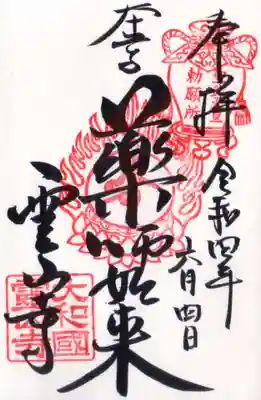 奉拝
勅願所
令和四年
六月四日
藥師如来
霊山寺
大和國
靈山寺